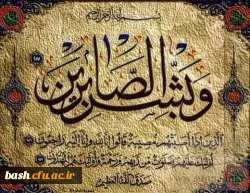 بسم الله الرحمن الرحيم
وَبَشِّرِ الصَّابِرِينَ
الَّذِينَ إِذَا أَصَابَتْهُمْ مُصِيبَةٌ قَالُوا إِنَّا لِلَّهِ وَإِنَّا إِلَيْهِ رَاجِعُونَ
أُولَئِكَ عَلَيْهِمْ صَلَوَاتٌ مِنْ رَبِّهِمْ وَرَحْمَةٌ وَأُولَئِكَ هُمُ الْمُهْتَدُونَ
صدق الله العظيم
bash.cfu.ac.ir
bash.cfu.ac.ir